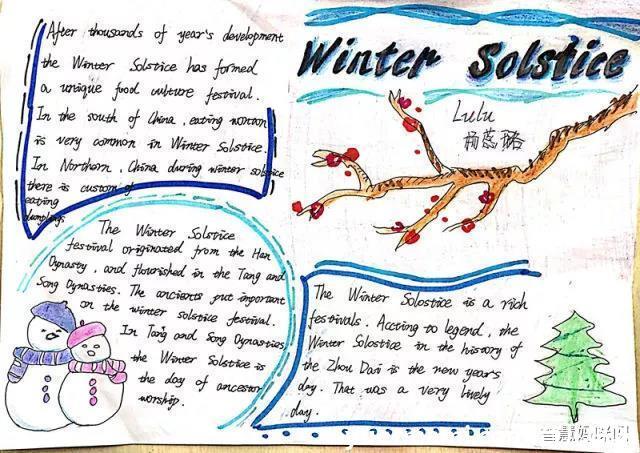 After thousands of year's development
the Winter Solstice has formed
a unique food culture festival.
In the south of China, eating wonton
is very common in Winter Solstice.
In Northern, China during winter solstice
there is custom of
eating
dumplings
The Winter Solstice
festival originated from the Han
Dynasty, and flourished in the Tang and
Song Dynasties. The ancients put important
on the winter solstice festival.
In Tang and Song Dynasties
the Winter Solstice is
the day of ancestor
worship.
Winter Solstice
Lulu
杨蕊璐
The Winter Solostice is a rich
festivals. Accting to legend, the
Winter Solostice in the history of
the Zhou Dai is the new years
day. That was a very lively
day.